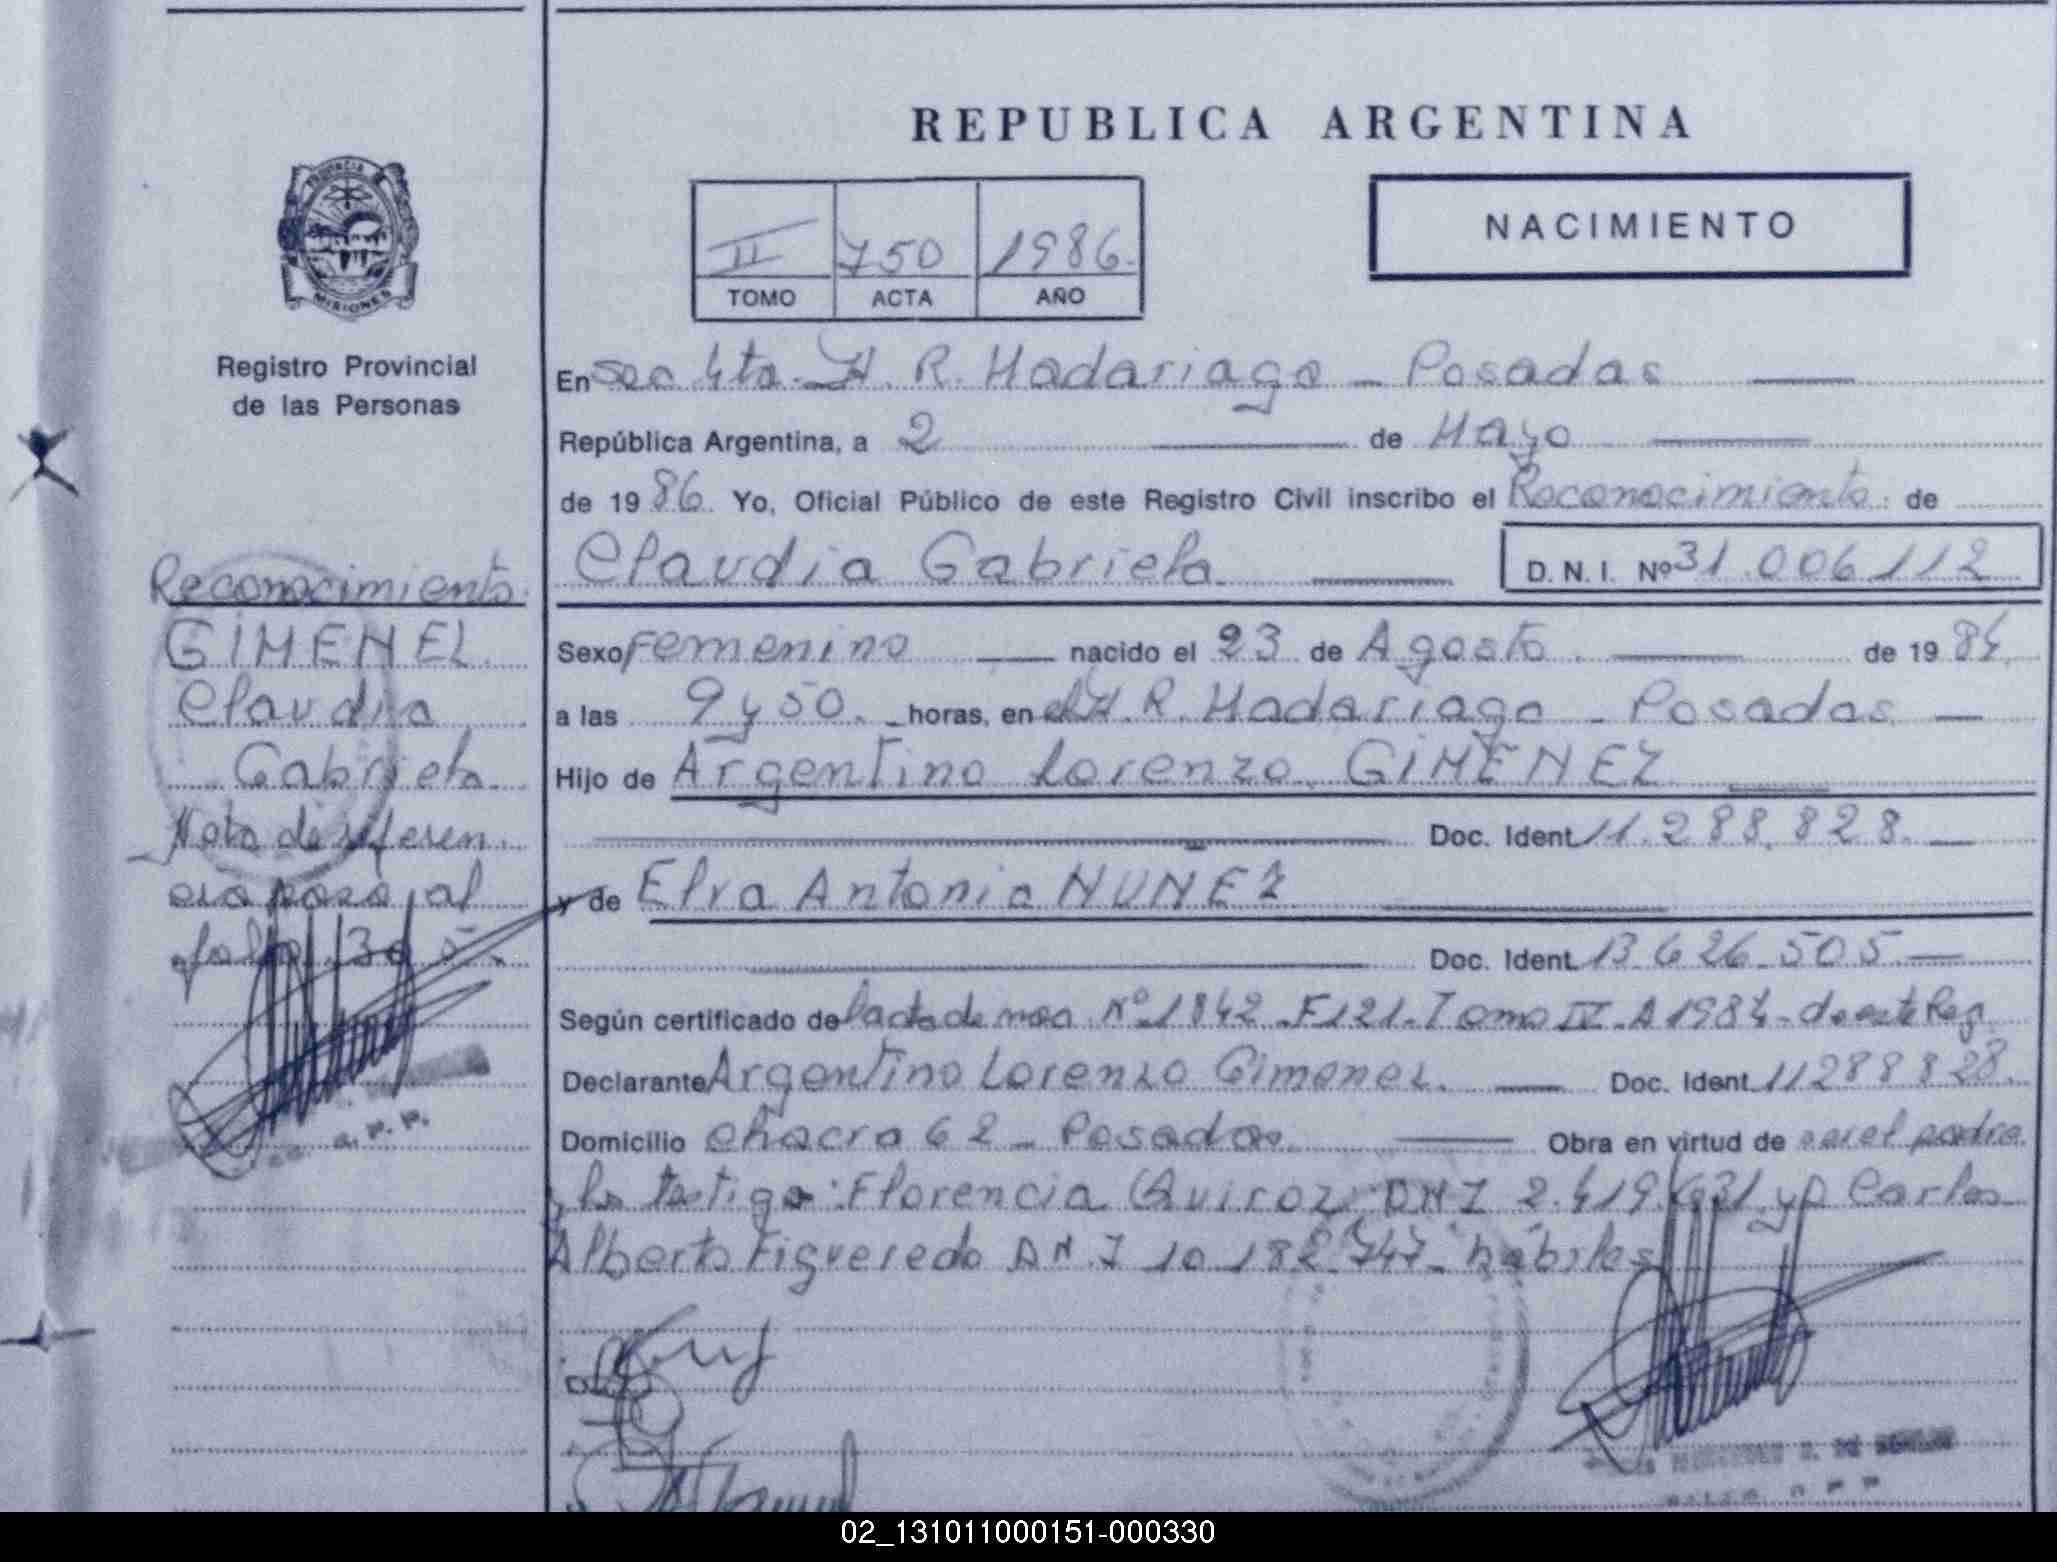 REPUBLICA ARGENTINA
NACIMIENTO
II 750 1986.
TOMO ACTA AÑO
PROVINCIA DE
MISIONES
Registro Provincial
de las Personas
En Sec 4ta. H. R. Madariaga - Posadas
República Argentina, a 2 de Mayo
de 1986. Yo, Oficial Público de este Registro Civil inscribo el Reconocimiento de
Claudia Gabriela D. N. I. Nº 31.006.112
Sexo Femenino nacido el 23 de Agosto de 1984
a las 9 y 50. horas, en el H. R. Madariaga - Posadas
Hijo de Argentino Lorenzo GIMENEZ
Doc. Ident. 11.288.828.
y de Elva Antonia NUNEZ
Doc. Ident. 13.626.505
Según certificado de Nº 1842 - F 121 - Tomo IV - A 1984 - de este Reg
Declarante Argentino Lorenzo Gimenez. Doc. Ident. 11288828.
Domicilio Chacra 62 - Posadas Obra en virtud de ser el padre
y los testigos: Florencia Quiroz DNI 2.419.631 y D Carlos
Alberto Figueredo DNI 10.182.747 - hábiles
Reconocimiento
GIMENEZ
Claudia
Gabriela
Nota de referen
cia pasa al
folio 305.
02_131011000151-000330